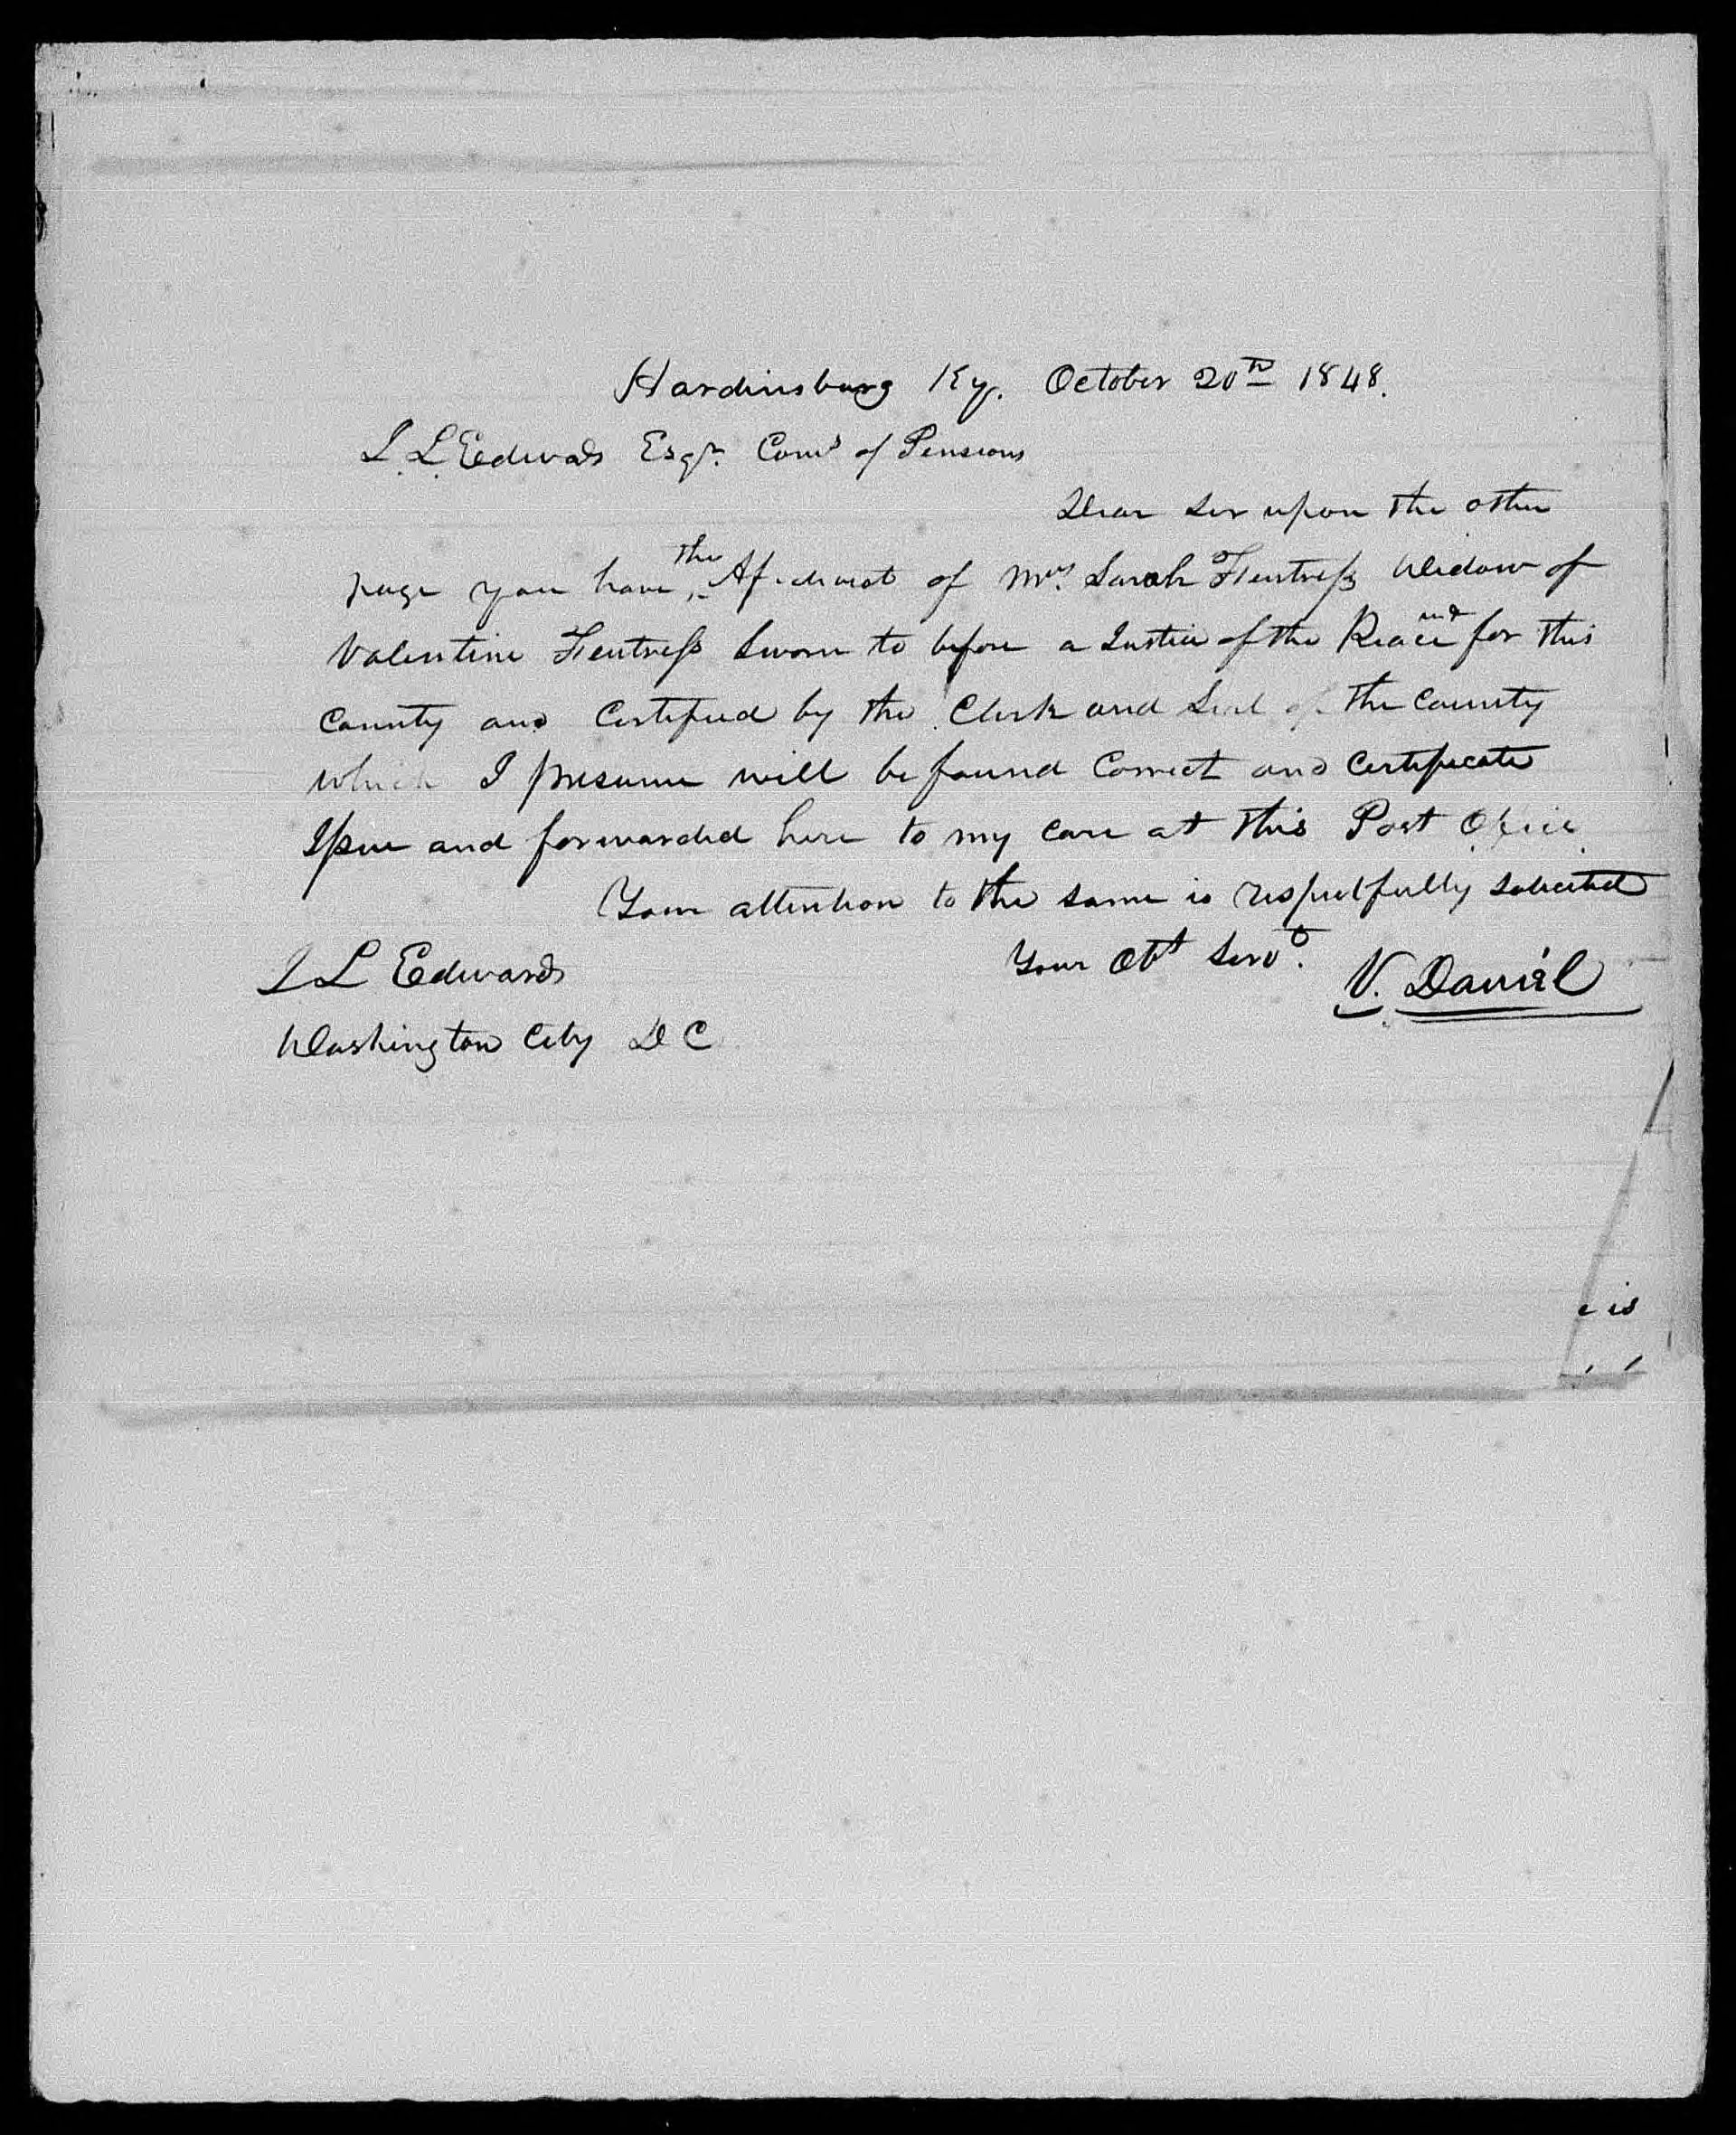 Hardinsburg Ky. October 20th 1848.
J. L. Edwads Esqr. Coms of Pensions
Dear Sir upon the other
page you have, the Afidavat of Mrs Sarah Fentress Widow of
Valentine Fentress Sworn to before a Justice of the Peace and for this
County and Certified by the Clerk and Seal of the County
which I presume will be found Correct and Certificate
Issue and forwarded here to my care at this Post Office
Your attention to the same is respectfully solicited
Your Obt Servt. V. Daniel
J L Edwards
Washington City DC
e is